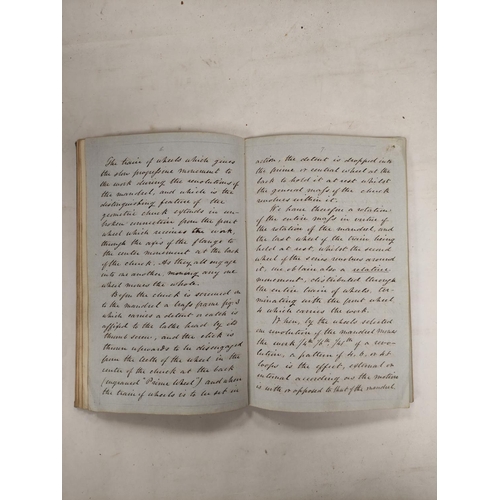 The train of wheels which gives
the slow progressive movement to
the work during the revolutions of
the mandrel, and which is the
distinguishing feature of the
geometric chuck extends in un-
broken connection from the front
wheel which receives the work,
through the axis of the flange to
the center movement at the back
of the chuck. As they all engage
into one another moving any one
wheel moves the whole.
Before the chuck is screwed on
to the mandrel a brass frame fig: 3
which carries a detent or catch is
affixed to the lathe head by its
thumb screw, and the click is
thrown upwards to be disengaged
from the teeth of the wheel in the
centre of the chuck at the back
(engraved "Prime Wheel") and when
the train of wheels is to be set in
action, the detent is dropped into
the prime or central wheel at the
back to hold it at rest whilst
the general mass of the chuck
revolves within it.
We have therefore a rotation
of the entire mass in virtue of
the rotation of the mandrel, and
the last wheel of the train being
held at rest, whilst the second
wheel of the series revolves around
it, we obtain also a relative
movement, distributed through
the entire train of wheels, ter-
minating with the front wheel
which carries the work.
When, by the wheels selected
one revolution of the mandrel moves
the work of a revo-
lution, a pattern of 4, 5, or 6
loops is the effect, external or
internal according as the motion
is with or opposed to that of the mandrel,